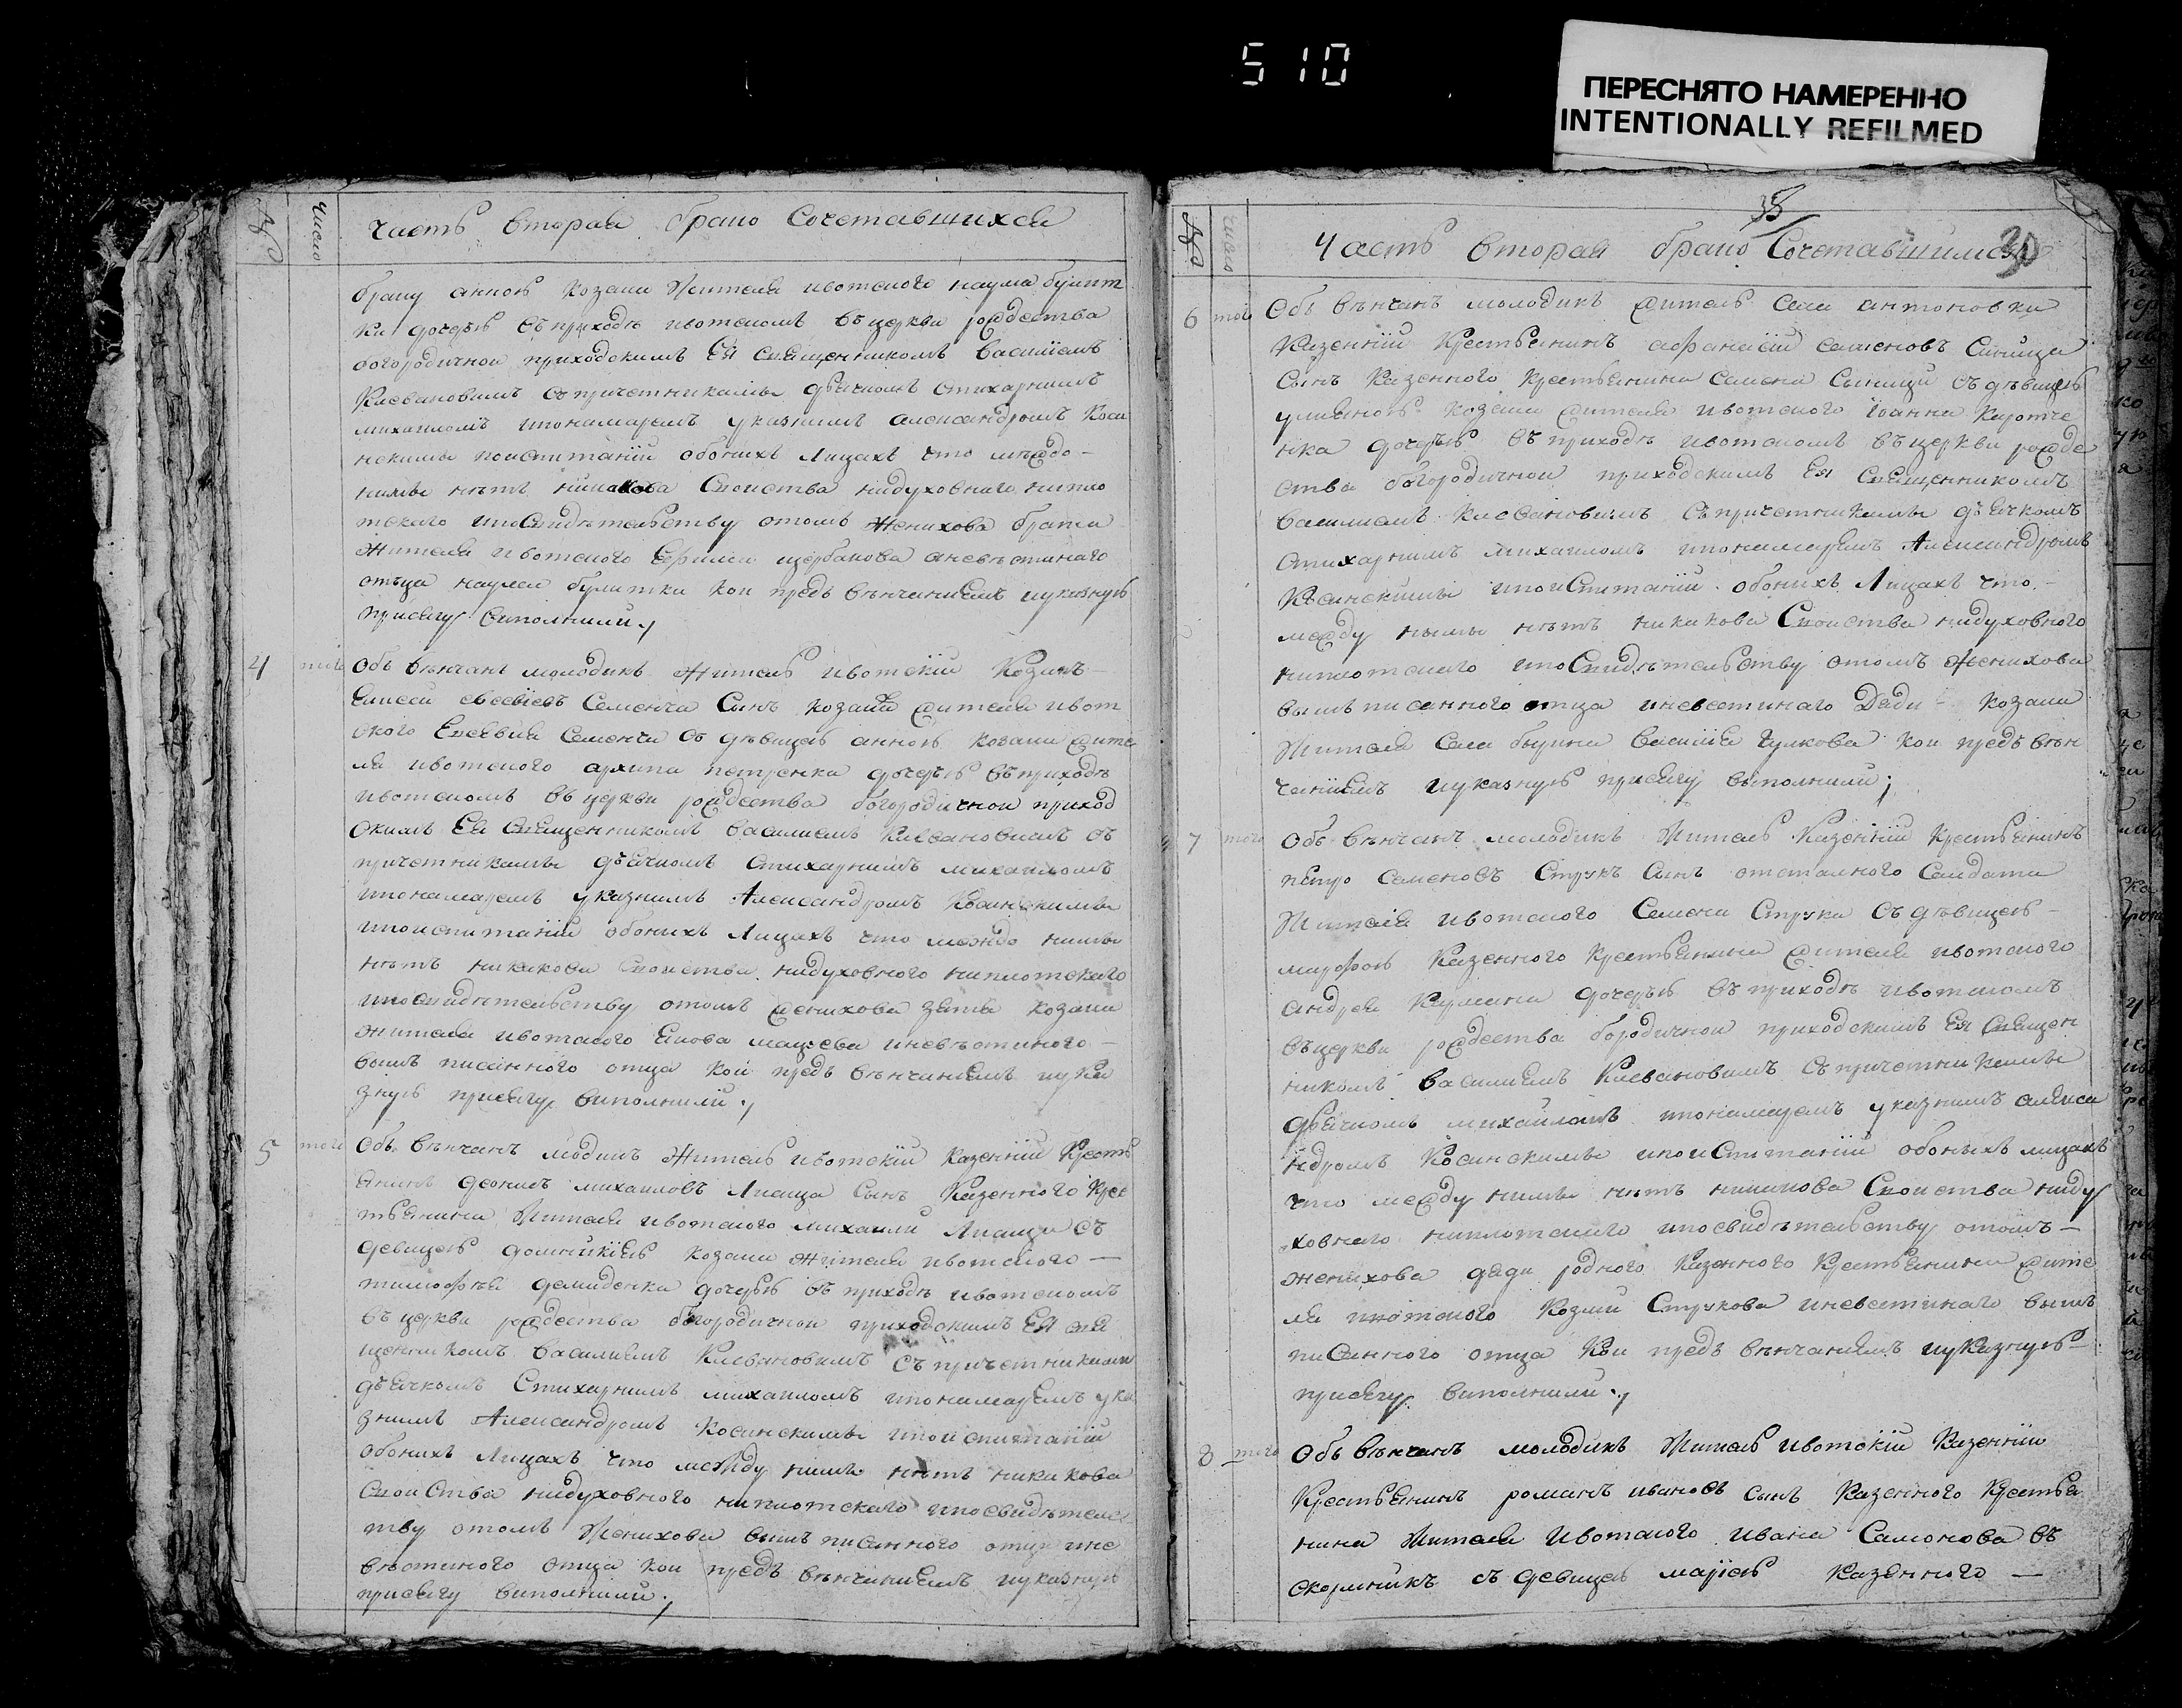 510
ПЕРЕСНЯТО НАМЕРЕННО
INTENTIONALLY REFILMED
№ Число Часть вторая брано сочетавшихся
брану анною козака жителя ивотского наума булит
ки дочерью въ приходѣ ивотскомъ въ церкви рождества
богородичной приходскимъ Ея священникомъ василиемъ
Клевановимъ съ причетниками дьячкомъ стихарнимъ
михаиломъ ипонамаремъ указнимъ александромъ Коси
нскимы поиспитаніи обоихъ лицахъ что между
нимы нѣтъ никакова своиства нидуховнаго нипло
тскаго ипосвидѣтельству отомъ женихова брата
жителя ивотского Ефима щербакова аневѣстинаго
отъца наума булитки кои предъ вѣнчаниемъ иуказную
присягу виполнили;
4 того Объ вѣнчанъ молодикъ житель ивотскій Козакъ
Елисей евсевіевъ Семенча Синъ козака жителя ивот
ского Евсевия Семенчи съ дѣвицею анною козака жите
ля ивотского архипа петренка дочерью въ приходѣ
ивотскомъ въ церкви рождества богородичной приход
скимъ Ея священникомъ василиемъ Клевановимъ съ
причетниками дьячкомъ стихарнимъ михаиломъ
ипонамаремъ указнимъ Александромъ Косинскимы
ипоиспитаніи обоихъ лицахъ что можду нимы
нѣтъ никакова своиства нидуховного ниплотскаго
ипосвидѣтельству отомъ женихова зятя козака
жителя ивотского Якова иневѣстиного
вышъ писанного отца кои предъ вѣнчаниемъ иука
зную присягу виполнили;
5 того Объ вѣнчанъ модикъ житель ивотскій казенній Кресть
янинъ деонис михаиловъ Лисица Сынъ Казенного Крес
тьянина жителя ивотского михаили Лисици съ
девицею домникіею козака жителя ивотского
тимофѣя демиденка дочерью въ приходѣ ивотскомъ
въ церкви рождества богородичной приходскимъ Ея свя
щенникомъ василиемъ Клевановимъ съ причетниками
дьячкомъ Стихарнимъ михаиломъ ипонамаремъ ука
знимъ Александромъ Косинскимы ипоиспитаніи
обоихъ лицахъ что между нимы нѣтъ никакова
своиства нидуховного ниплотскаго ипосвидѣтельс
тву отомъ женихова вышъ писанного отца ине
вѣстиного отца кои предъ вѣнчаниемъ иуказную
присягу виполнили;
38
30
№ Число Часть вторая брано Сочетавшимся
6 того Объ вѣнчанъ молодикъ житель села антоновки
Казенній Крестьянинъ афанасій семеновъ Синица
Сынъ Казенного Крестьянина Семена Сыници съ дѣвицею
улияною козака жителя ивотского іоанна Коротче
нка дочерью въ приходѣ ивотскомъ въ церкви рожде
ства богородичной приходскимъ Ея священникомъ
василиемъ Клевановимъ съ причетникамы дьячкомъ
стихарнимъ михаиломъ ипонамаремъ Александромъ
Косинскимы ипоиспитаніи обоихъ лицахъ что
между нымы нѣтъ никакова своиства нидуховного
ниплотского ипосвидѣтельству отомъ женихова
вышъ писанного отца иневестинаго Дяди козака
жителя села быцина василия Чулкова кои предъ вѣн
чаниемъ иуказную присягу выполнили;
7 того Объ вѣнчанъ молодикъ житель Казенній Крестьянинъ
петро Семеновъ Струкъ Сынъ отсталного Салдата
жителя ивотского Семена Струка съ дѣвицею
марфою Казенного Крестьянина жителя ивотского
андрея дочерью въ приходѣ ивотскомъ
въ церкви рождества бородичной приходскимъ Ея священ
никомъ василиемъ Клевановимъ съ причетникамы
дьячкомъ михаиломъ ипонамаремъ указнимъ алекса
ндромъ Косинскимы ипоиспитаніи обоихъ лицахъ
что между нимы нѣтъ никакова своиства ниду
ховнаго ниплотскаго ипосвидѣтельству отомъ
женихова дяди родного казенного Крестьянина жите
ля ивотского Козми Струкова иневестинаго вышъ
писанного отца кои предъ вѣнчаниемъ иуказную
присягу виполнили;
8 того Объ вѣнчанъ молодикъ житель ивотскій Казенній
Крестьянинъ романъ ивановъ сынъ Казенного Крестья
нина жителя ивотского ивана Самонова въ
скормникъ съ девицею маріею Казенного